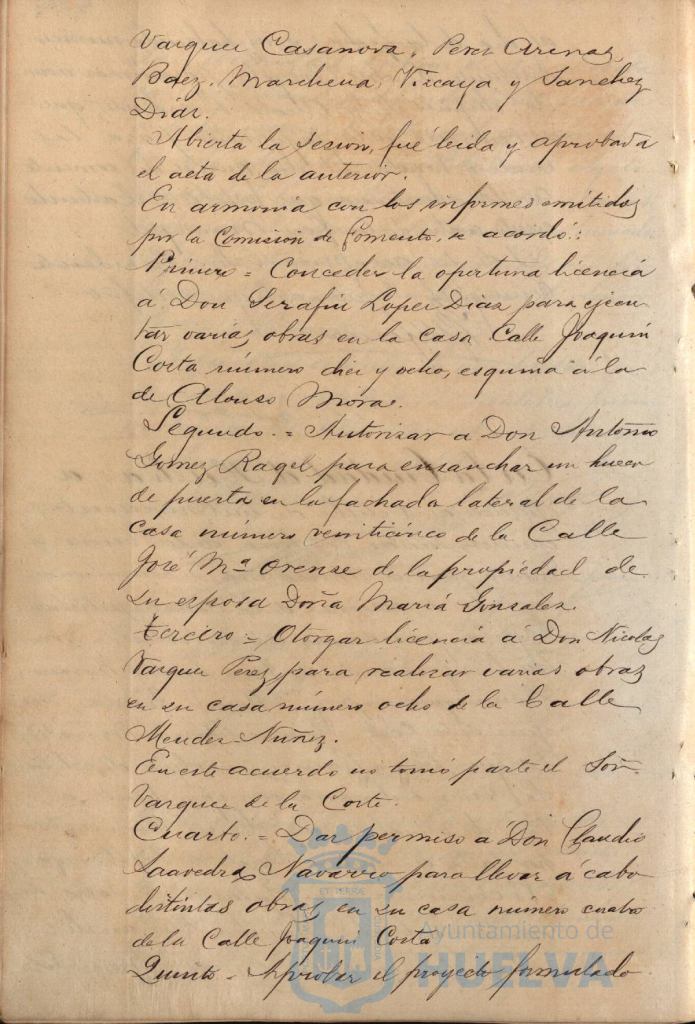 Vazquez Casanova, Perez Arenas,
Baez, Marchena, Vizcaya y Sanchez
Diaz.
Abierta la sesion, fué leida y aprobada
el acta de la anterior.
En armonía con los informes emitidos
por la Comision de Fomento, se acordó:
Primero = Conceder la oportuna licencia
á Don Serafin Lopez Diaz para ejecu-
tar varias obras en la casa Calle Joaquin
Costa número diez y ocho, esquina á la
de Alonso Mora.
Segundo. = Autorizar a Don Antonio
Gomez Raqel para ensanchar un hueco
de puerta en la fachada lateral de la
casa número veinticinco de la Calle
José Mª Orense de la propiedad de
su esposa Doña María Gonzalez.
Tercero = Otorgar licencia á Don Nicolas
Vazquez Perez, para realizar varias obras
en su casa número ocho de la Calle
Mendez Nuñez.
En este acuerdo no tomó parte el Señ.
Vazquez de la Corte.
Cuarto. = Dar permiso á Don Claudio
Saavedra Navarro para llevar á cabo
distintas obras en su casa número cuatro
de la Calle Joaquin Costa
Quinto - Aprobar el proyecto formulado
Ayuntamiento de
HUELVA